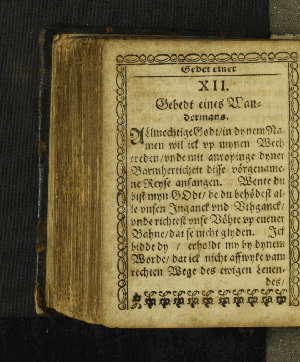 Gebet einer
XII.
Gebedt eines Wan-
dermans.
Allmechtige Godt/in dynem Na-
men wil ick vp mynen Wech
treden/vnde mit anropynge dyner
Barmherticheit disse vörgename-
ne Reyse anfangen. Wente du
bist myn GOdt/de du behödest al-
le vnsen Inganck vnd Vthganck/
vnde richtest vnse Vöhte vp euener
Bahne/dat se nicht glyden. Ick
bidde dy / erholdt my by dynem
Worde/dat ick nicht affwyke vam
rechten Wege des ewigen Leuen-
des/